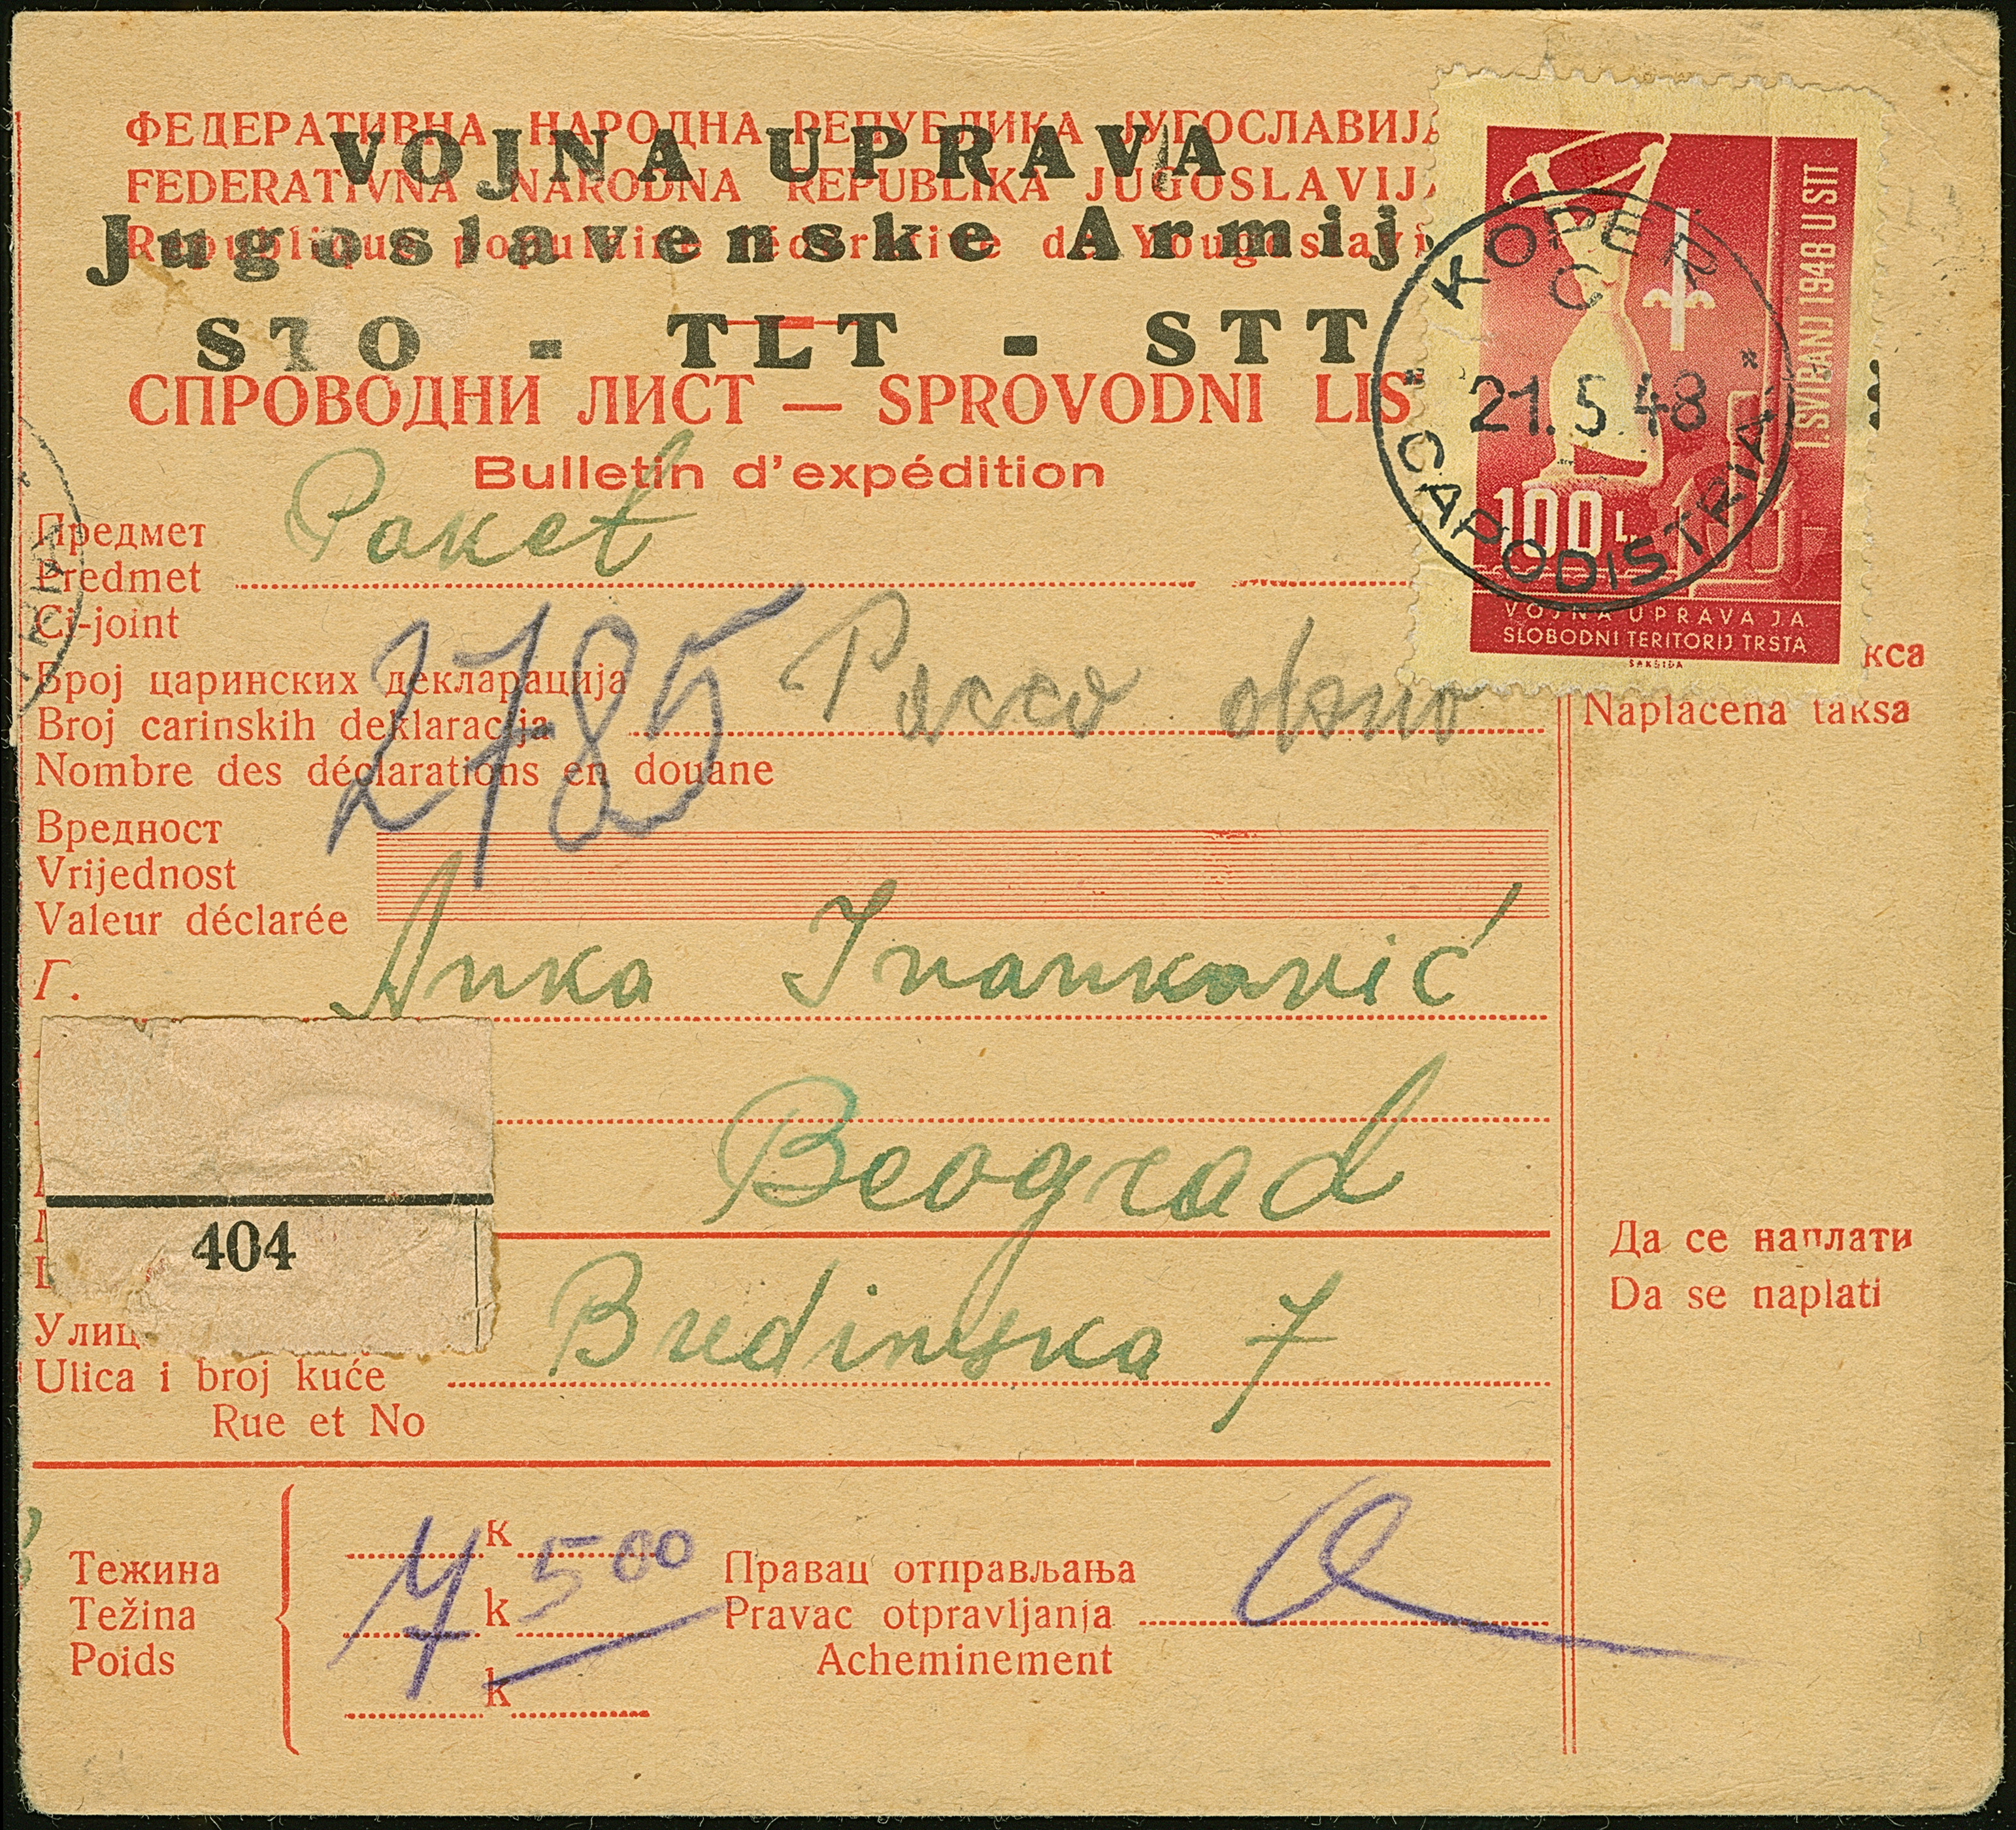 ФЕДЕРАТИВНА НАРОДНА РЕПУБЛИКА ЈУГОСЛАВИЈА
VOJNA UPRAVA
FEDERATIVNA NARODNA REPUBLIKA JUGOSLAVIJ
Jugoslavenske Armij
République populaire fédérative de Yougoslavi
STO - TLT - STT
СПРОВОДНИ ЛИСТ — SPROVODNI LIS
Bulletin d'expédition
1. SVIBANJ 1948 U STT
KOPER
C
21.5.48
CAPODISTRIA
100 L.
VOJNA UPRAVA J.A.
SLOBODNI TERITORIJ TRSTA
SAKSIDA
Предмет
Predmet
Paket
Ci-joint
Број царинских декларација
Broj carinskih deklaracija
2785
Nombre des déclarations en douane
кса
Naplaćena taksa
Вредност
Vrijednost
Valeur déclarée
Г.
Anka Ivanković
Beograd
404
Да се наплати
Da se naplati
Улиц
Ulica i broj kuće
7
Rue et No
Тежина
Težina
Poids
к
k
k
7 500
Правац отправљања
Pravac otpravljanja
Acheminement